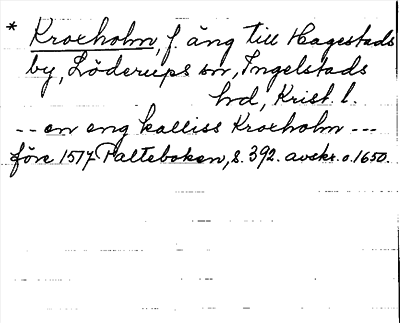 * Kroxholm, f. äng till Hagestads
by, Löderups sn, Ingelstads
hd, Krist. l.
-- en eng kalliss Kroxholm ---
före 1517 Palteboken, s. 392. avskr. o. 1650.